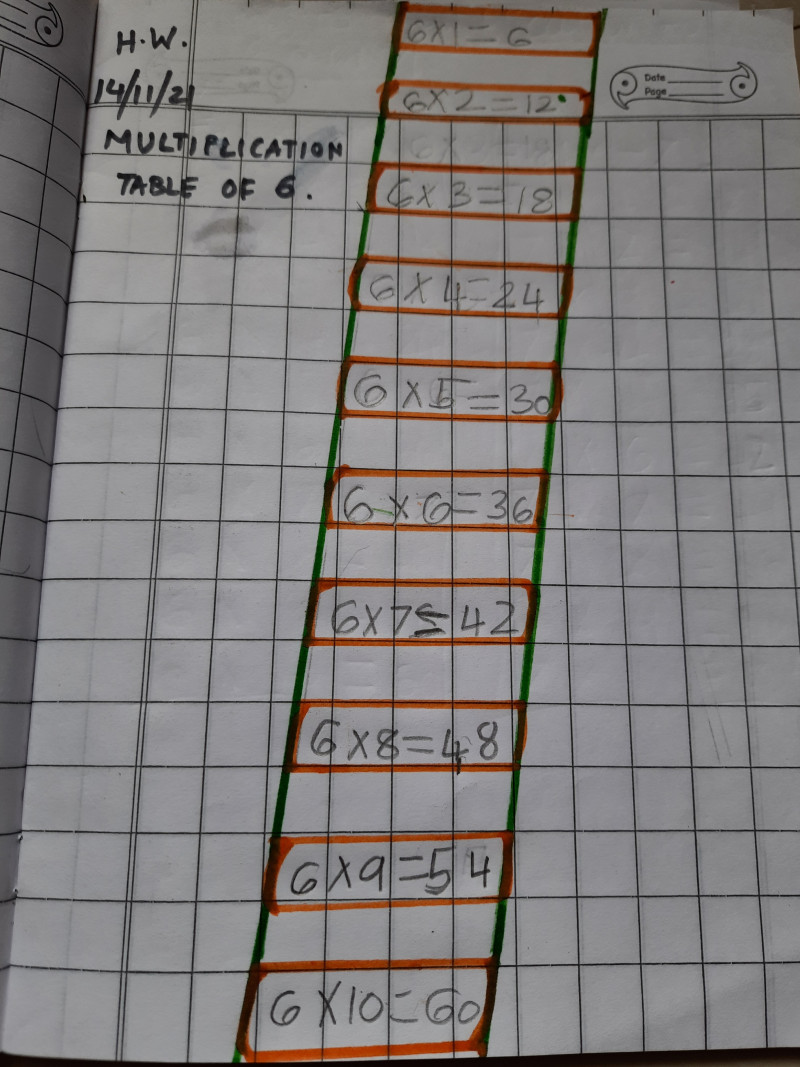 H.W.
14/11/21
MULTIPLICATION
TABLE OF 6.
Date
Page
6X1=6
6X2=12
6X3=18
6X4=24
6X5=30
6X6=36
6X7=42
6X8=48
6X9=54
6X10=60